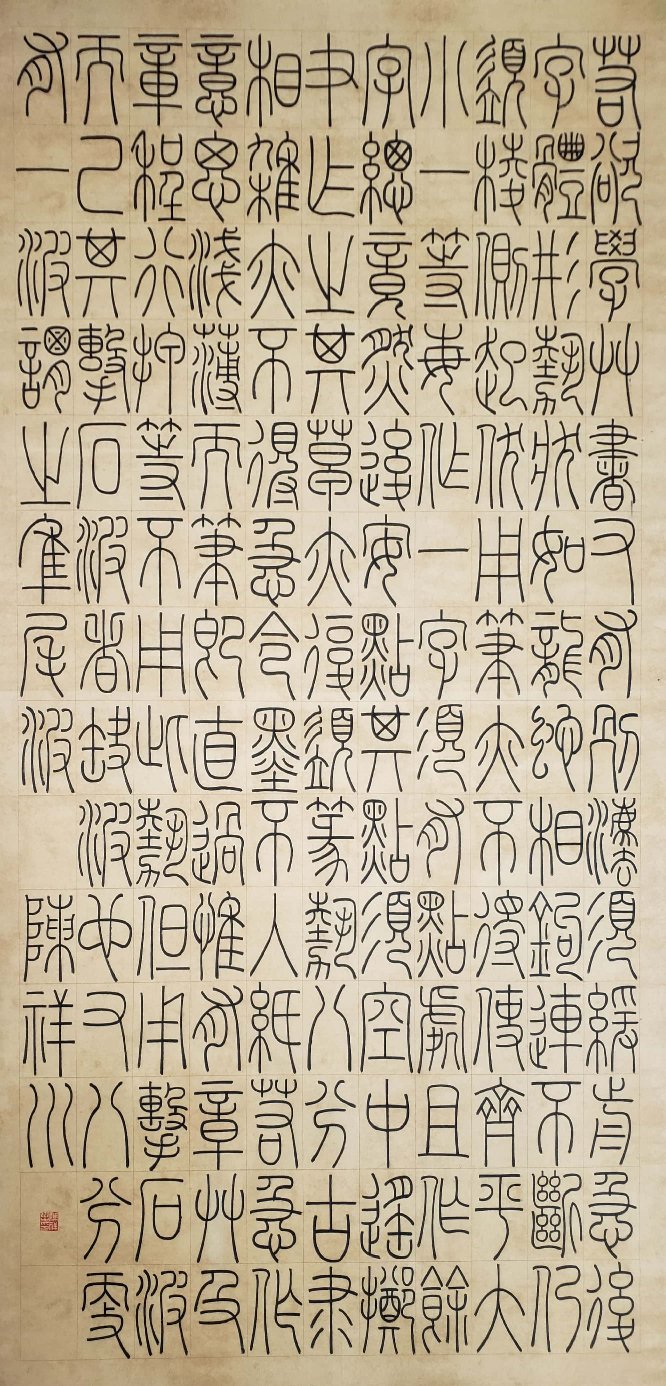 若欲學艸書又有別法須緩前急後
字體形勢狀如龍蛇相鉤連不斷仍
須棱側起伏用筆亦不得使齊平大
小一等每作一字須有點處且作餘
字總竟然後安點其點須空中遙擲
聿乍之其草亦復須篆勢八分古隸
相雜亦不得急令墨不入紙若急作
意思淺薄而筆即直過惟有章艸及
章程行押等不用此勢但用擊石波
而已其擊石波者缺波也又八分更
有一波謂之隼尾波
陳祥川